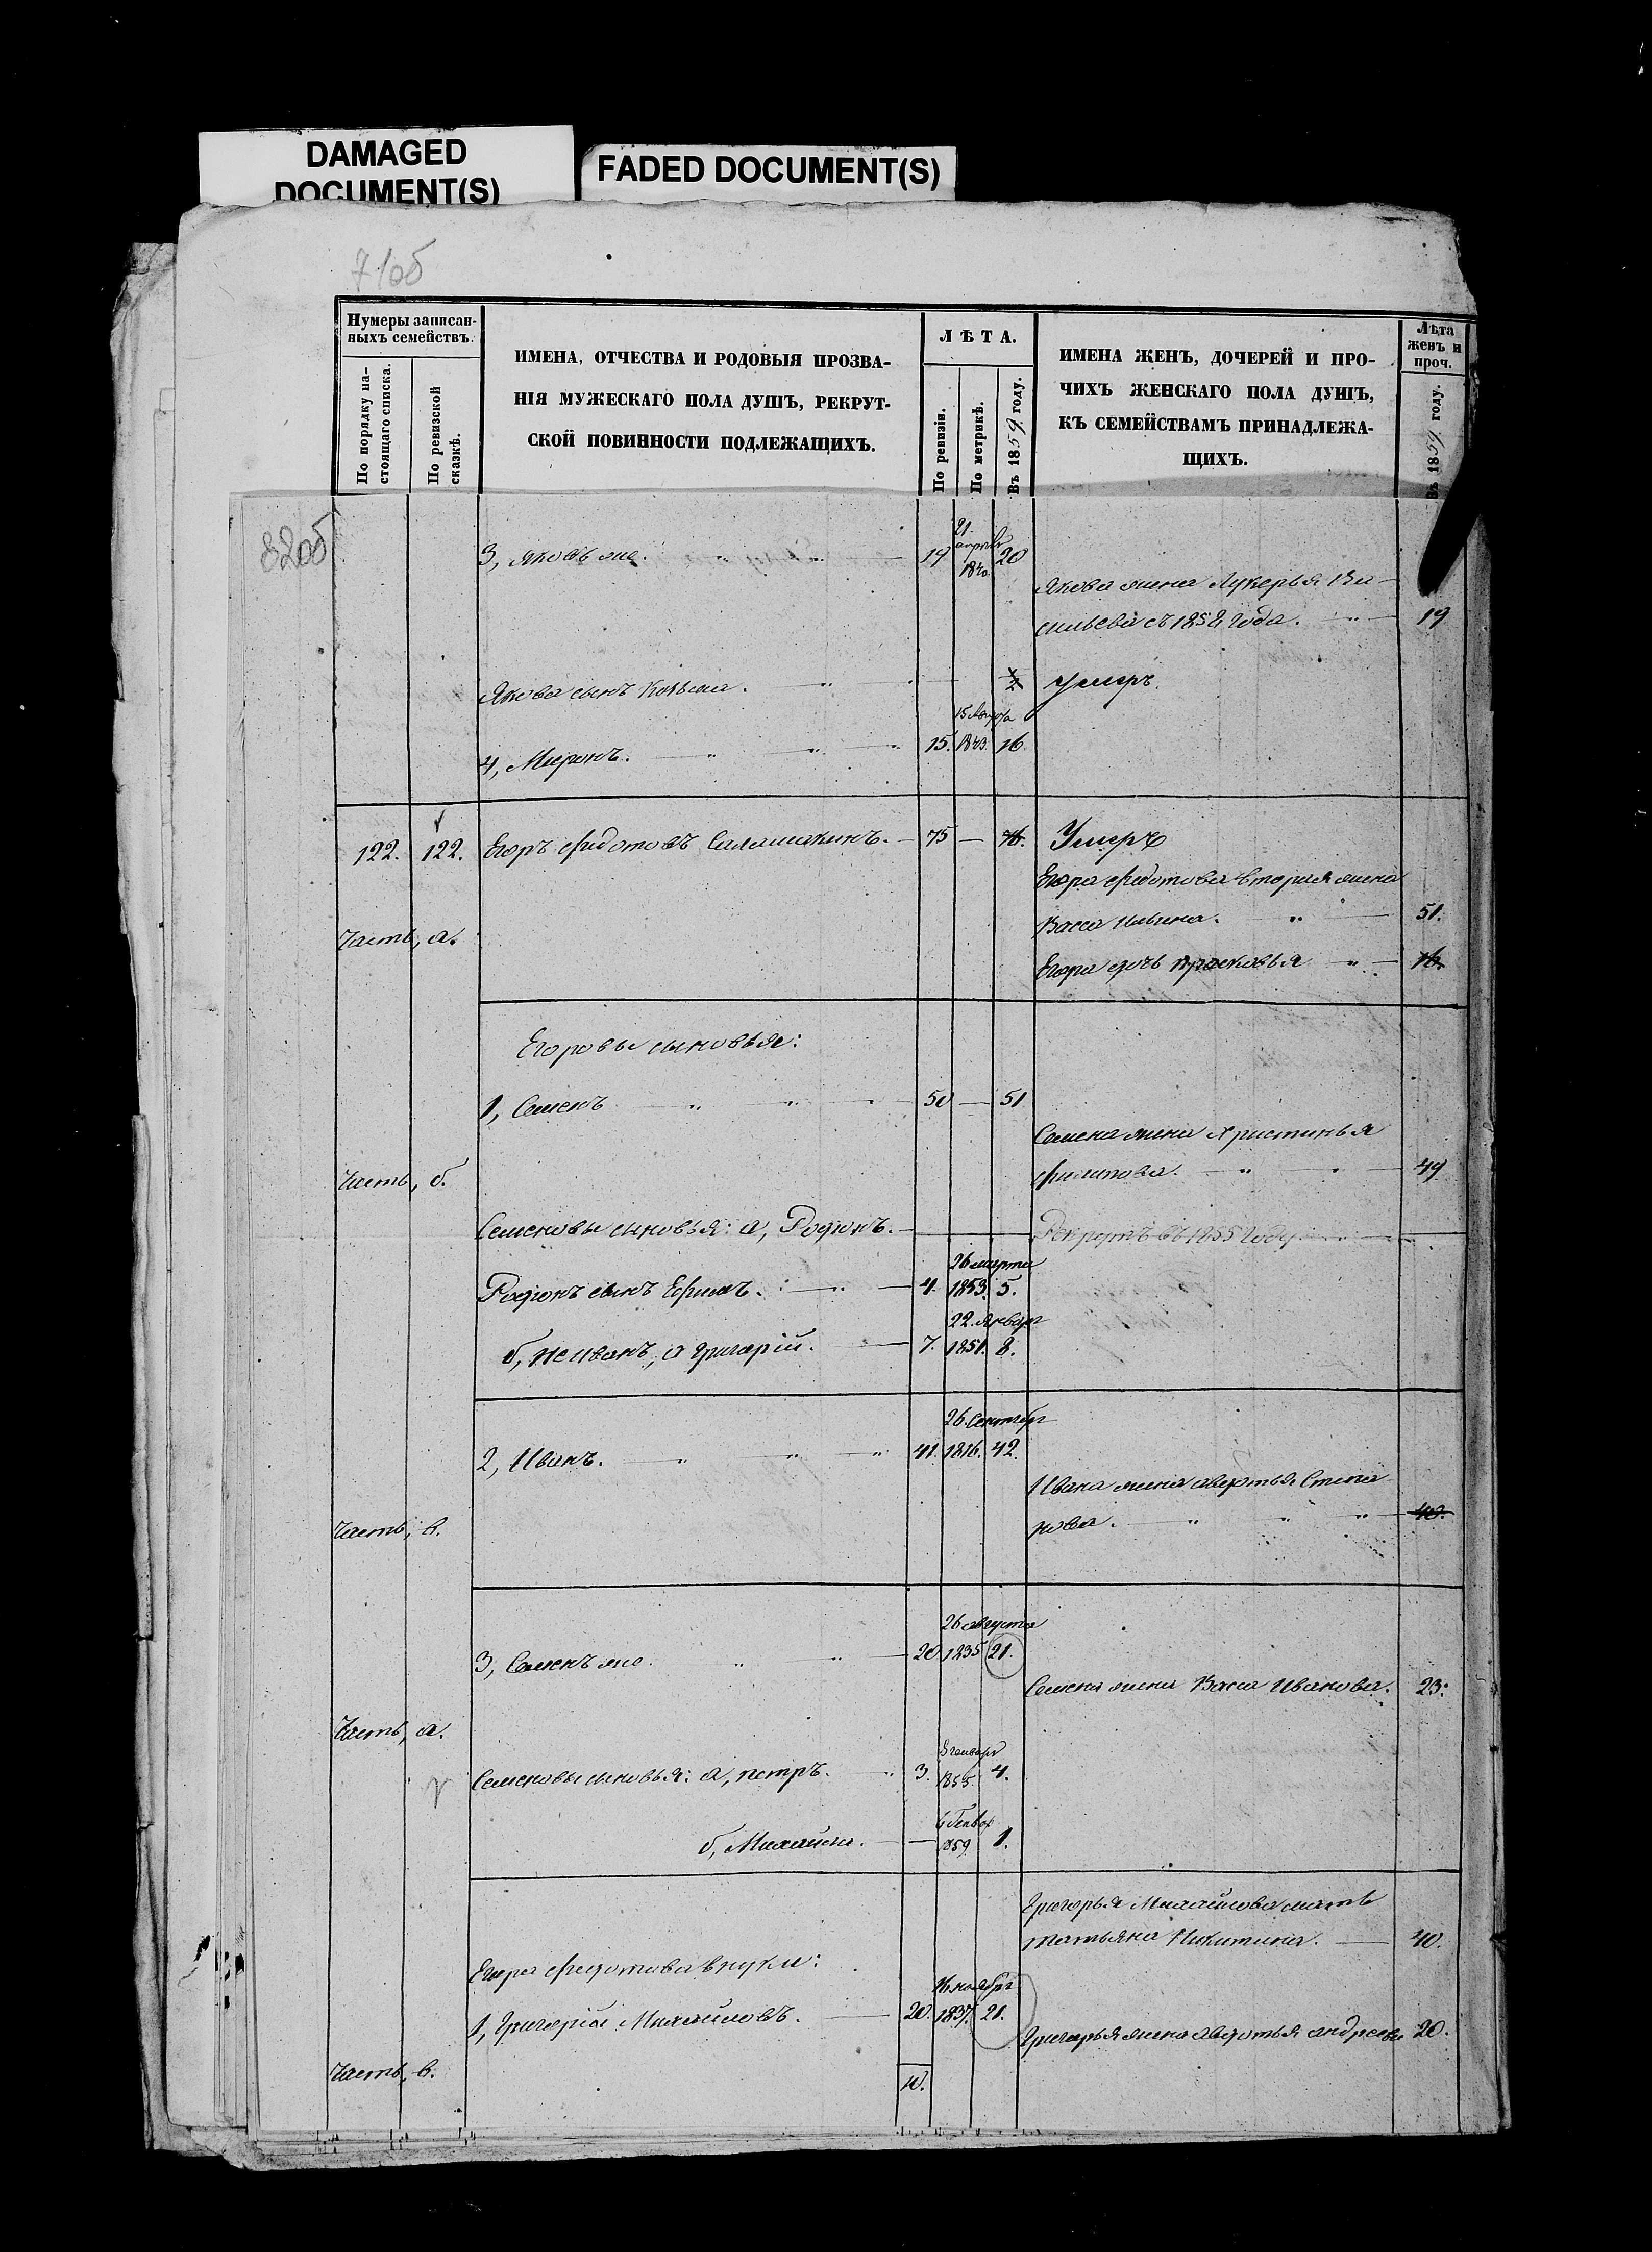 DAMAGED
DOCUMENT(S)
FADED DOCUMENT(S)
7/об
Нумеры записан-
ныхъ семействъ.
По порядку на-
стоящаго списка.
По ревизской
сказкѣ.
ИМЕНА, ОТЧЕСТВА И РОДОВЫЯ ПРОЗВА-
НІЯ МУЖЕСКАГО ПОЛА ДУШЪ, РЕКРУТ-
СКОЙ ПОВИННОСТИ ПОДЛЕЖАЩИХЪ.
ЛѢТА.
По ревизіи.
По метрикѣ.
Въ 1859 году.
ИМЕНА ЖЕНЪ, ДОЧЕРЕЙ И ПРО-
ЧИХЪ ЖЕНСКАГО ПОЛА ДУШЪ,
КЪ СЕМЕЙСТВАМЪ ПРИНАДЛЕЖА-
ЩИХЪ.
Лѣта
женъ и
проч.
Въ 1859 году.
82об
3, Яковъ же. 19 21 апреля 1840. 20
Якова жена Лукерья Ва-
сильева съ 1858 года. 19
Якова сынъ Козьма. Умеръ.
4, Миронъ. 15. 15 Августа 1843. 16
122. 122. Егоръ Федотовъ Саламахинъ. 75 — 76. Умеръ
Егора Федотова вторая жена
Васса Ильина. 51.
Часть, а.
Егора дочь Прасковья 16.
Егоровы сыновья:
1, Семенъ 50 — 51
Семена жена Христинья
Филипова. 49
Часть, б.
Семеновы сыновья: а, Родионъ. Рекрутъ въ 1855 году
Родионъ сынъ Ефимъ. 4. 26 марта 1853. 5.
б, не Иванъ, а Григорій. 7. 22 Января 1851. 8.
2, Иванъ. 41. 26 Сентября 1816. 42.
Ивана жена Авдотья Степа
нова. 40.
Часть, в.
3, Семенъ же. 20. 26 августа 1835 21.
Семена жена Васса Иванова. 23.
Часть, а.
Семеновы сыновья: а, Петръ. 3. 1855. 4.
б, Михайла. — 1859. 1.
Григорья Михайлова мать
Татьяна Никитина. 40.
Егора Федотова внуки:
1, Григорій Михайловъ. 20. 16 ноября 1837. 21.
Григорья жена Авдотья Андреева 20.
Часть, в.
10.